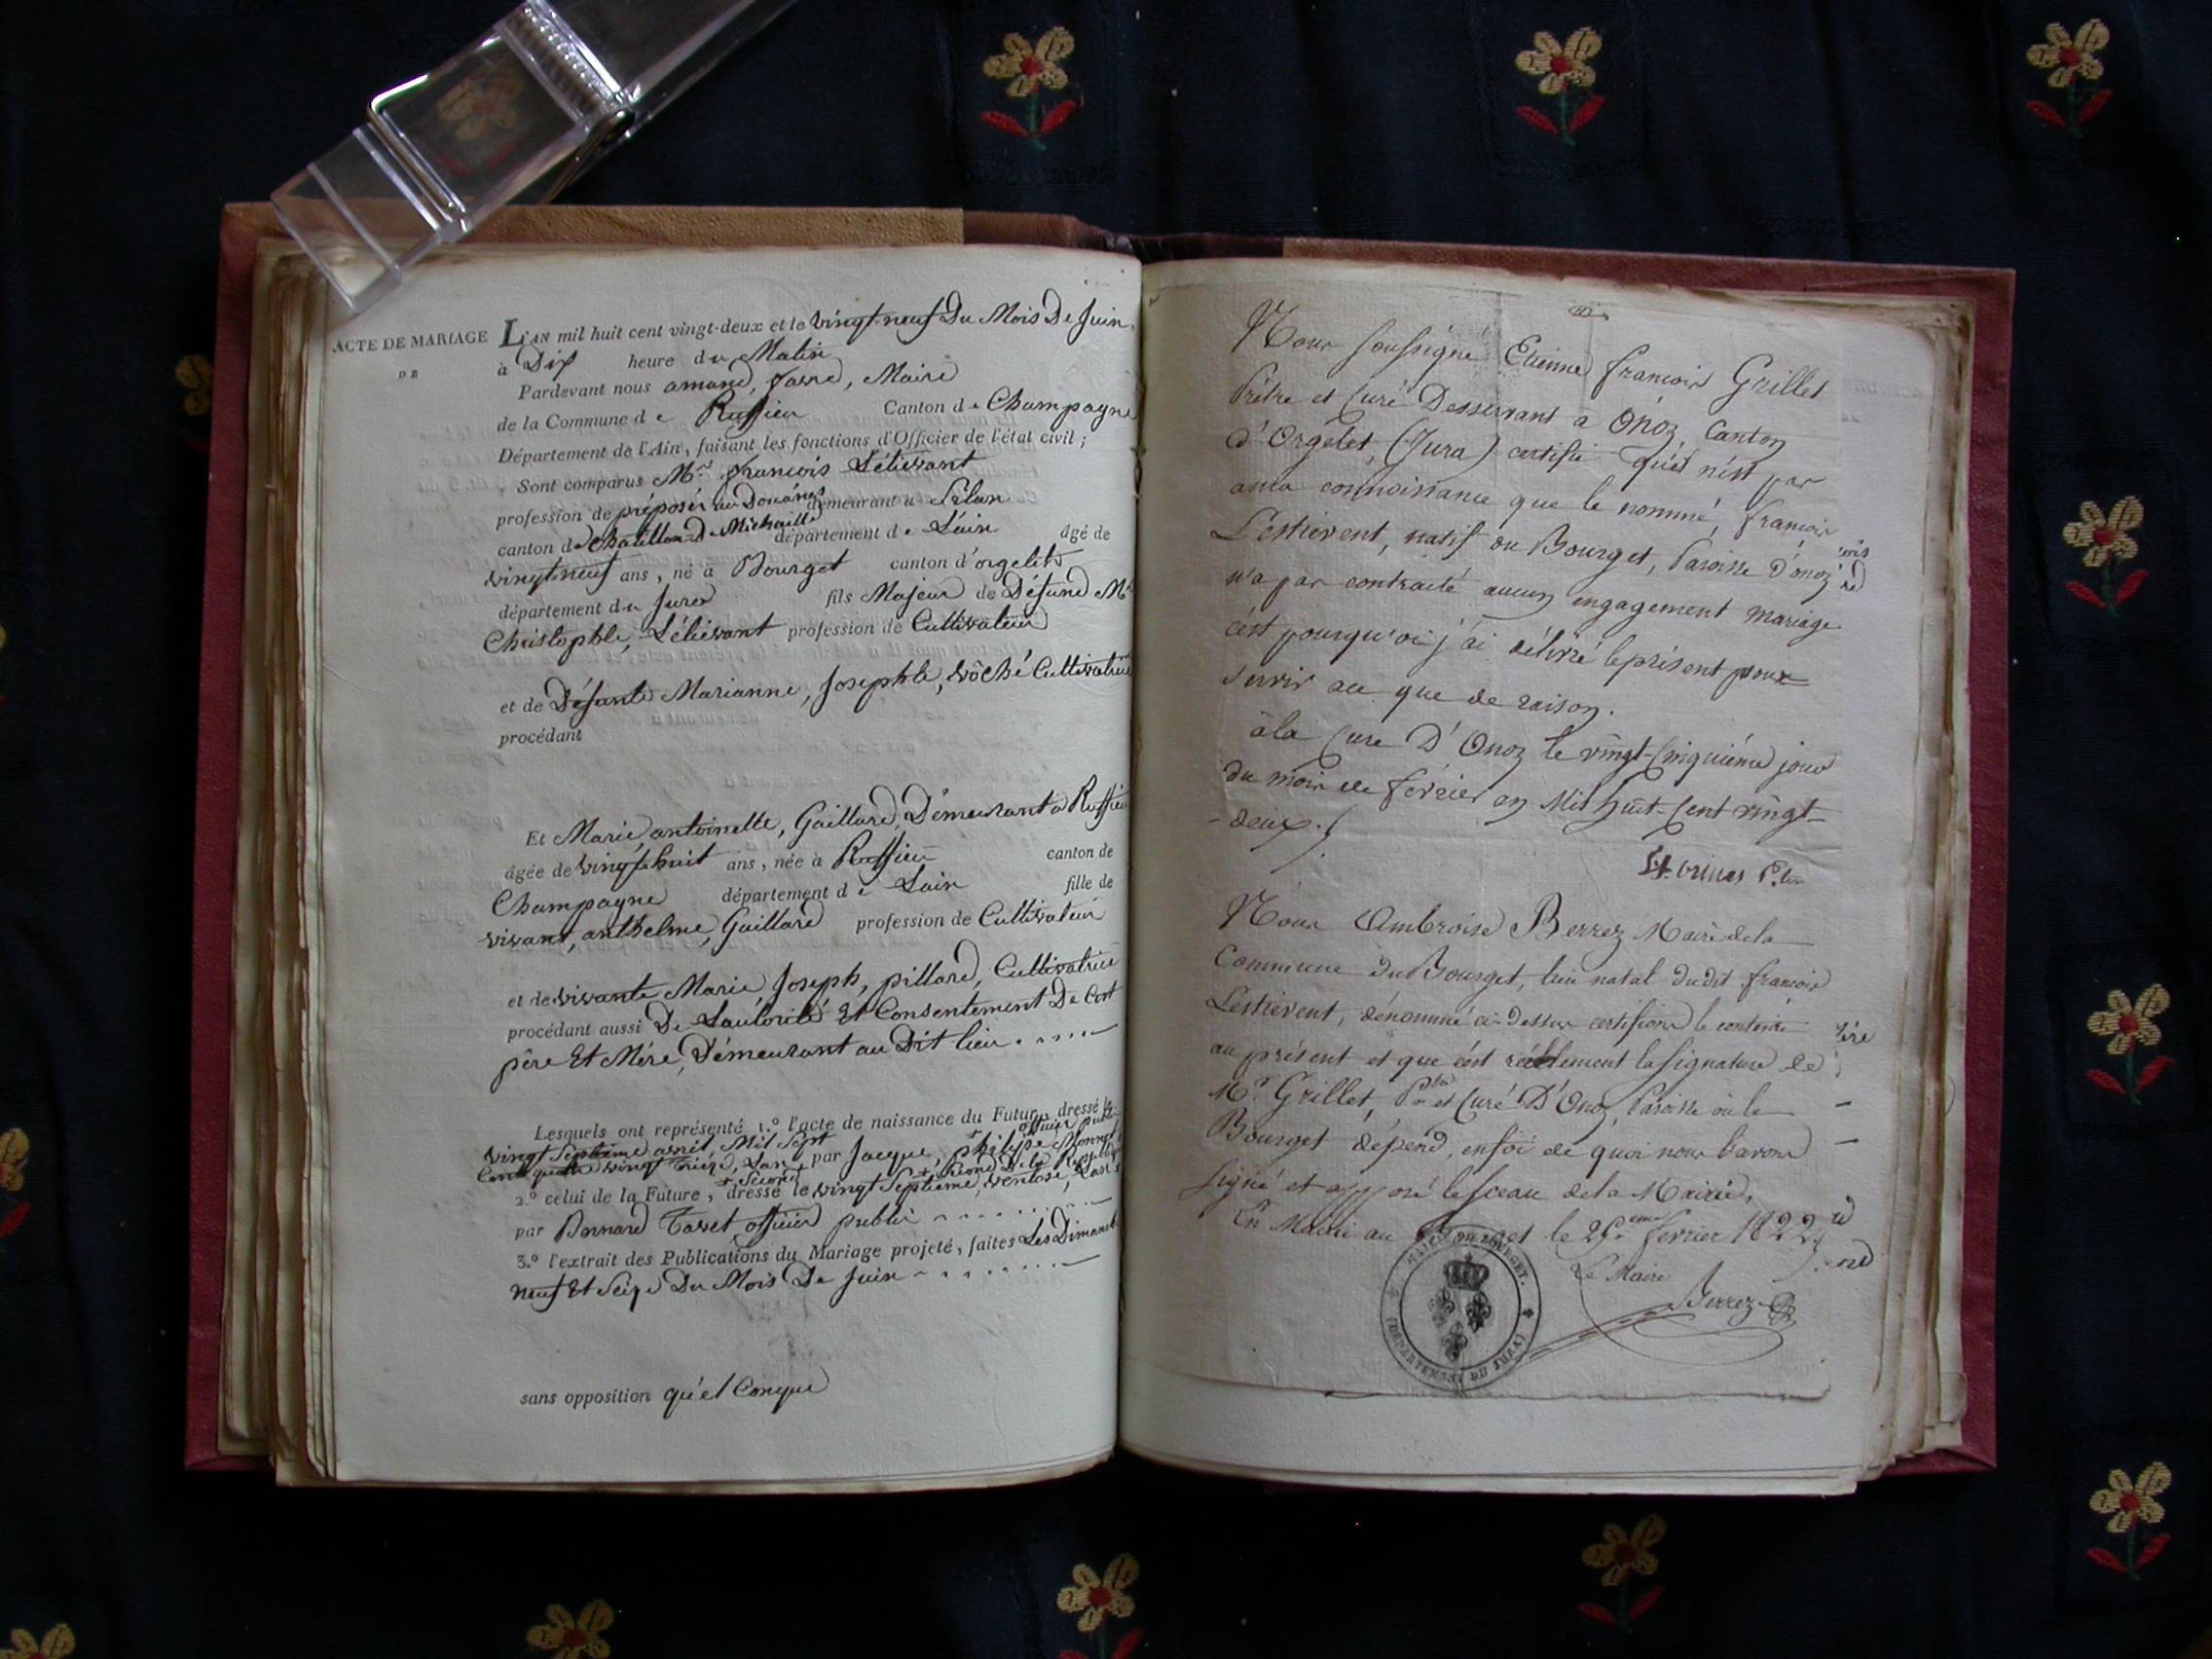 ACTE DE MARIAGE
DE
L'AN mil huit cent vingt-deux et le vingt-neuf Du Mois De Juin,
à Dix heure du Matin
Pardevant nous amand, favre, Maire
de la Commune de Ruffieu Canton de Champagne
Département de l'Ain, faisant les fonctions d'Officier de l'état civil ;
Sont comparus Mr. francois Létievant
profession de préposér au Douánes demeurant a Sélan
canton de Chatillon-D-Michaille département de Láin âgé de
vingt-neuf ans, né à Bourget canton d'orgelet
département du Jura fils Majeur de Défund Mr
Christophle, Létievant profession de Cultivateur
et de Défunte Marianne, Josephle, vôché Cultivatrice
procédant
Et Marie antoinette, Gaillard, Démeurant a Ruffieu
âgée de vingt-huit ans, née à Ruffieu canton de
Champagne département de Lain fille de
vivant, anthelme, Gaillard profession de Cultivateur
et de vivante Marie Joseph, pillard, Cultivatrice
procédant aussi De Láutorité Et Consentement De
père Et Mére, Démeurant au Dit lieu
Lesquels ont représenté 1.º l'acte de naissance du Futur, dressé le
vingt Septième avril Mil Sept
Cent quatre vingt treize, Lan second par Jacque, philippe Monnet officier public
2.º celui de la Future, dressé le vingt Septième, ventose, Lan
par Bernard Tavet officier public
3.º l'extrait des Publications du Mariage projeté, faites Les Dimanche
neuf Et Seize Du Mois De Juin
sans opposition qu'el Conque
Nous soussigné Etienne francois Grillet
Prêtre et Curé Desservant a Onoz, Canton
d'Orgelet, (Jura) certifie qu'il n'est pas
a ma connoissance que le nommé, francois
Léstievent, natif du Bourget, Paroisse D'onoz
n'a par contracté aucun engagement mariage
c'est pourquoi j'ai délivré le présent pour
servir a ce que de raison.
à la Cure D'Onoz le vingt-Cinquiéme jour
du mois de févrièr en Mil huit-Cent vingt-
-deux./.
Nous Ambroise Berrez Maire de la
Commune du Bourget, lieu natal dudit francois
Lestievent, dénommé ci-Dessus certifions le contenu
au présent et que c'est réellement la signature de
Mr. Grillet, Ptre et Curé D'Onoz, Paroisse où le
Bourget dépend, en foi de quoi nous l'avons
signé et apposé le sceau de la Mairie,
En Mairie au Bourget le 25.eme fevrier 1822
Le Maire
Berrez
MAIRIE DU BOURGET.
(DÉPARTEMENT DU JURA)